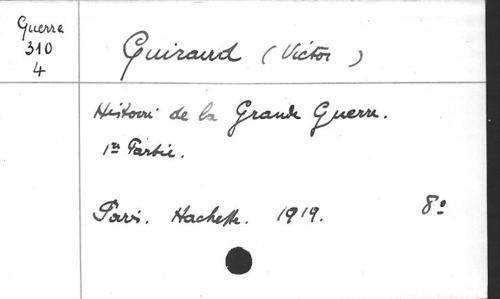 Guerre
310
4
Guiraud (Victor)
Histoire de la Grande Guerre.
1re Partie.
Paris. Hachette. 1919. 8º